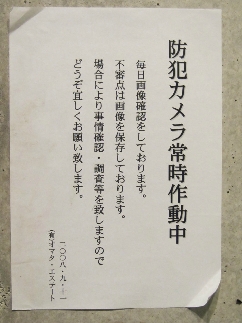 防犯カメラ常時作動中
毎日画像確認をしております。
不審点は画像を保存しております。
場合により事情確認・調査等を致しますので
どうぞ宜しくお願い致します。
二〇〇八・九・一一
㈲イマタ・エステート